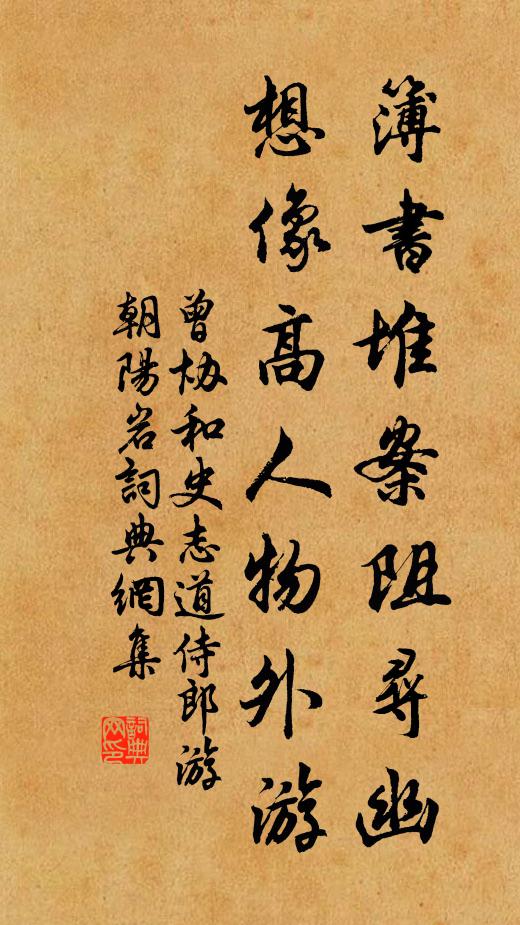 簿書堆案阻尋幽
想像高人物外游
曾協和史志道侍郎游
朝陽岩詞典網集
詞典網印